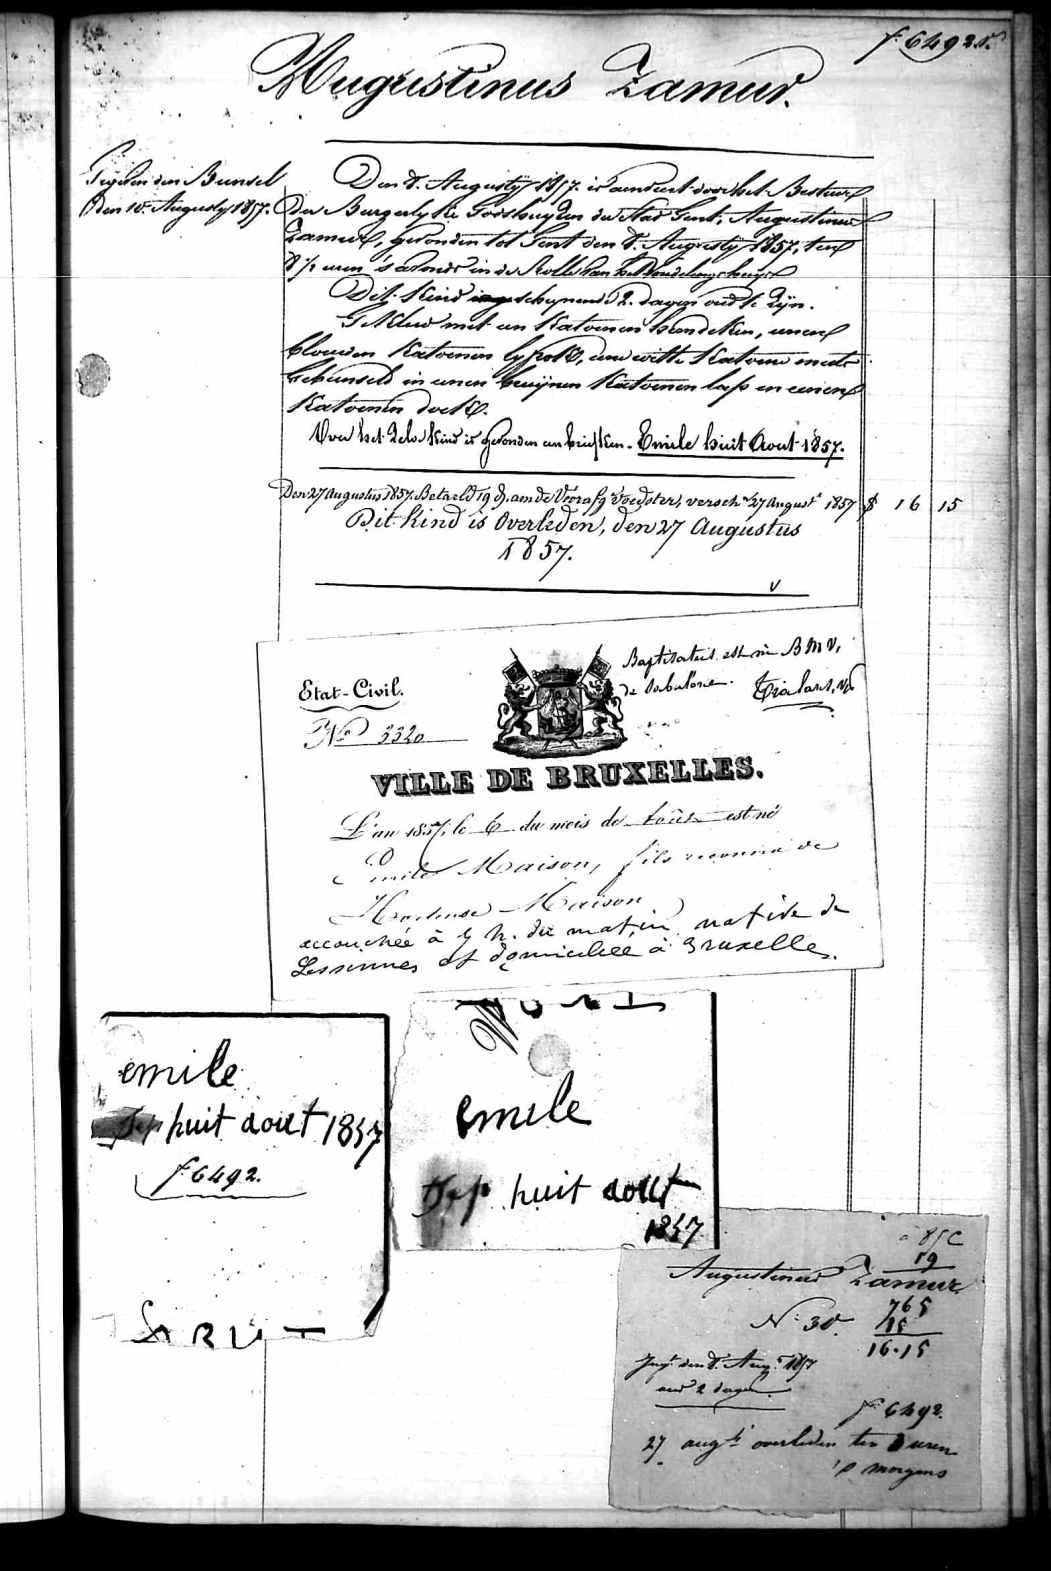 f. 6492.
Augustinus Zamur.
den 10 Augusty 1857.
Den 8. Augusty 1857. is aenveert door het Bestuur
Der Burgerlyke Godshuyzen der Stad Gent, Augustinus
Zamur, gevonden tot Gent den 8. Augusty 1857, ten
8 1/2 uren 's avonds in de Rolle van het Vondelingshuys
Dit Kind schynende 2. dagen oud te zyn.
Gekleed met een Katoenen hemdeken, eenen
blauwen Katoenen lyfrok, eene witte Katoene muts
in eenen bruynen Katoenen lap en eenen
Katoenen doek.
Over het zelve Kind is gevonden een briefken - Emile huit Aout 1857.
Den 27 Augustus 1857. Betaeld 19 d. aen de Voedster, versch. 27 August 1857 $ 16 15
Dit kind is Overleden, den 27 Augustus
1857.
Etat-Civil.
Nº 3320
Baptisatus est in B M V,
de
VILLE DE BRUXELLES.
L'an 1857, le 6 du mois de août est né
Emile Maison, fils reconnu de
Hortense Maison
accouchée à 7 h. du matin, native de
Lessinnes et domiciliée à Bruxelles.
emile
huit aout 1857
f. 6492.
emile
huit aout
1857
à 85 C
19
Augustinus Zamur
765
N. 30.
15
16.15
den 8. Aug. 1857
oud 2 dagen.
f. 6492.
27 augti overleden ten uren
's morgens